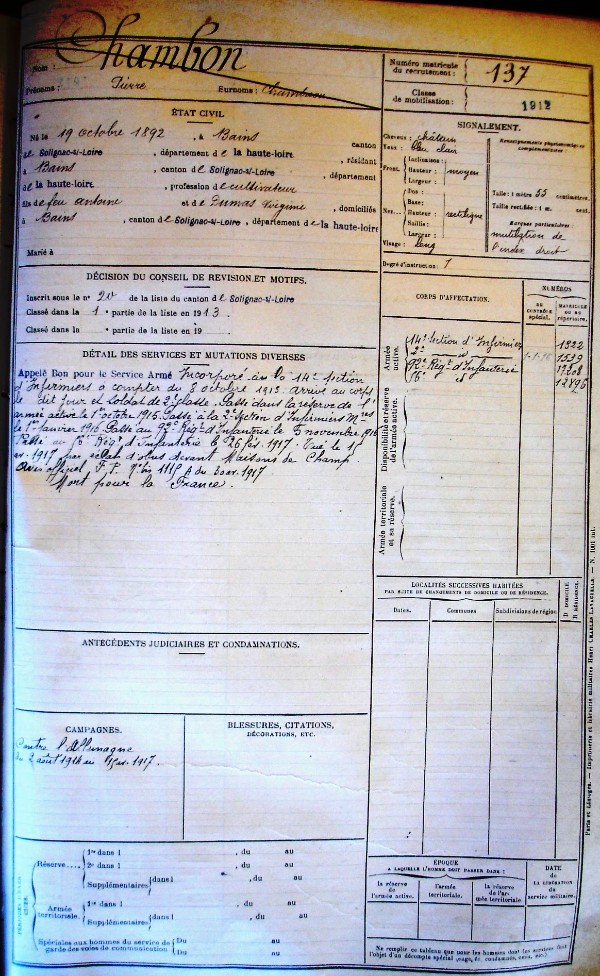 Nom : Chambon
Prénoms : Pierre Surnoms : Chambon
Numéro matricule du recrutement : 137
Classe de mobilisation : 1912
ÉTAT CIVIL
Né le 19 octobre 1892, à Bains canton
de Solignac-s/-Loire, département de la haute-loire, résidant
à Bains, canton de Solignac-s/-Loire, département
de la haute-loire, profession de cultivateur
fils de feu antoine et de Dumas Virginie, domiciliés
à Bains, canton de Solignac-s/-Loire, département de la haute-loire
Marié à
SIGNALEMENT.
Cheveux : châtain
Yeux : bleu clair
Renseignements physionomiques complémentaires :
Front. Inclinaison :
Hauteur : moyen
Largeur :
Nez... Dos :
Base :
Hauteur : rectiligne
Saillie :
Largeur :
Visage : long
Taille : 1 mètre 55 centimètres.
Taille rectifiée : 1 m. cent.
Marques particulières :
mutilation de
l'index droit
Degré d'instruction :
DÉCISION DU CONSEIL DE REVISION ET MOTIFS.
Inscrit sous le n° 20 de la liste du canton de Solignac-s/-Loire
Classé dans la 1e partie de la liste en 1913.
Classé dans la e partie de la liste en 19
DÉTAIL DES SERVICES ET MUTATIONS DIVERSES
Appelé Bon pour le Service Armé Incorporé à la 14e Section
d'Infirmiers à compter du 8 octobre 1913 arrivé au corps
le dit jour et Soldat de 2e classe. Passé dans la réserve de l'
armée active le 1er octobre 1915. Passé à la 2e Section d'Infirmiers Mres
le 1er Janvier 1916 Passé au 92e Régt d'Infanterie le 5 novembre 1916
Passé au 16e Régt d'Infanterie le 26 fév. 1917. Tué le 15
av. 1917 par éclat d'obus devant Maisons de Champ.
Avis officiel, F. P. 1917
Mort pour la France.
CORPS D'AFFECTATION.
NUMÉROS
DE CONTRÔLE spécial.
MATRICULE OU DU répertoire.
Armée active.
14e Section d'Infirmiers 1822
2e d° 1539
92e Régt d'Infanterie
16e d°
Disponibilité et réserve de l'armée active.
Armée territoriale et sa réserve.
LOCALITÉS SUCCESSIVES HABITÉES
PAR SUITE DE CHANGEMENTS DE DOMICILE OU DE RÉSIDENCE.
Dates. Communes Subdivisions de région D DOMICILE R RÉSIDENCE.
ANTÉCÉDENTS JUDICIAIRES ET CONDAMNATIONS.
CAMPAGNES.
Contre l'Allemagne
du 2 août 1914 au 15 av. 1917.
BLESSURES, CITATIONS,
DÉCORATIONS, ETC.
Réserve....
1re dans l , du au
2e dans l , du au
Supplémentaires dans l , du au
Armée territoriale.
1re dans l , du au
Supplémentaires dans l , du au
Spéciales aux hommes du service de garde des voies de communication Du au
Du au
ÉPOQUE
A LAQUELLE L'HOMME DOIT PASSER DANS :
la réserve de l'armée active.
l'armée territoriale.
la réserve de l'armée territoriale
DATE de LA LIBÉRATION du service militaire.
Paris et Limoges. — Imprimerie et librairie militaires Henri CHARLES-LAVAUZELLE.